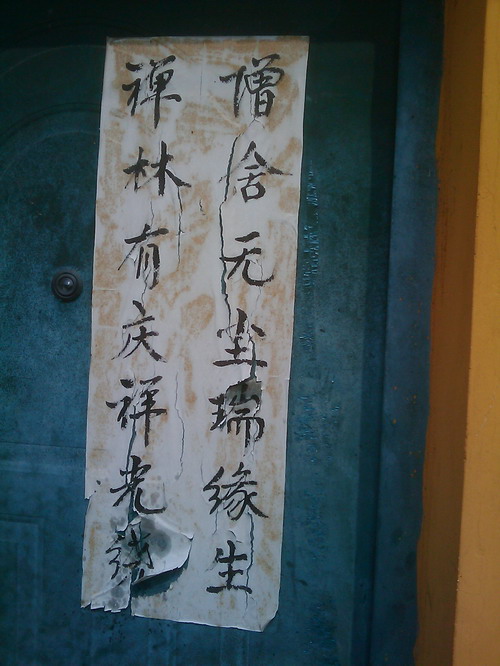 僧舍无尘瑞缘生
禅林有庆祥光